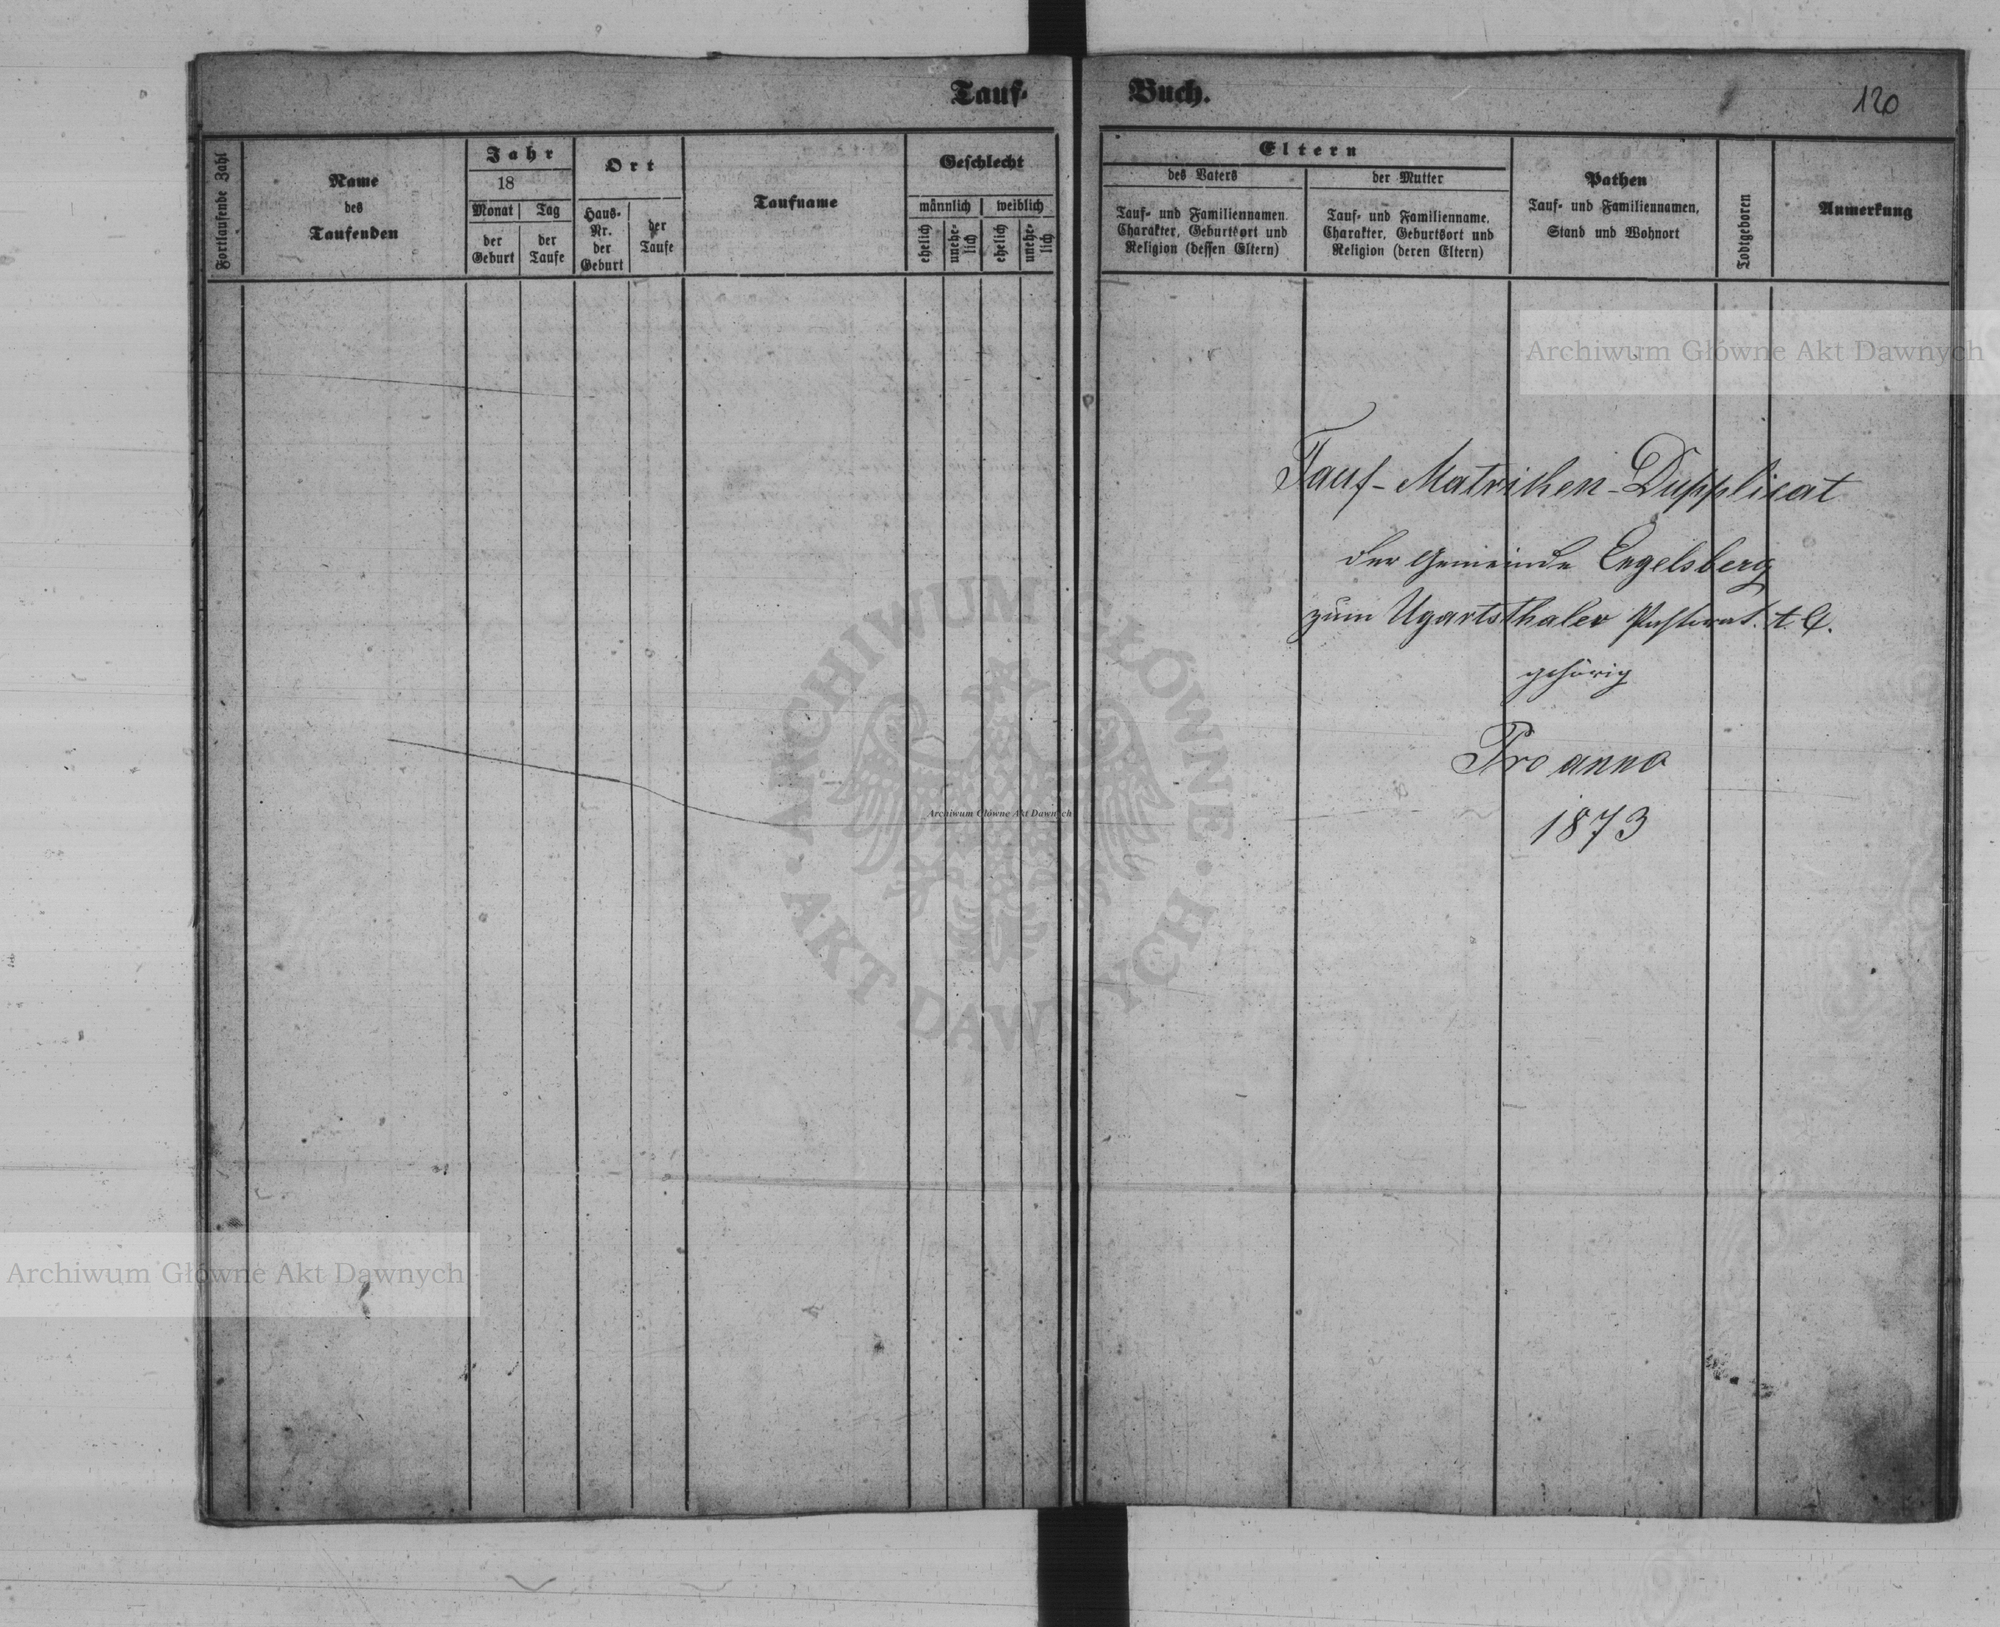 Tauf-
Fortlaufende Zahl
Name
des
Taufenden
Jahr
18
Monat
Tag
der
Geburt
der
Taufe
Ort
Haus-
Nr.
der
Geburt
der
Taufe
Taufname
Geschlecht
männlich
weiblich
ehelich
unehe-
lich
ehelich
unehe-
lich
Buch.
120
Eltern
des Vaters
Tauf- und Familiennamen.
Charakter, Geburtsort und
Religion (dessen Eltern)
der Mutter
Tauf- und Familienname,
Charakter, Geburtsort und
Religion (deren Eltern)
Pathen
Tauf- und Familiennamen,
Stand und Wohnort
Todtgeboren
Anmerkung
Archiwum Główne Akt Dawnych
Tauf-Matriken-Dupplicat
der Gemeinde Engelsberg
zum Ugartsthaler Pastorat.
gehörig
Pro anno
1873
ARCHIWUM GŁÓWNE
AKT DAWNYCH
Archiwum Główne Akt Dawnych
Archiwum Główne Akt Dawnych